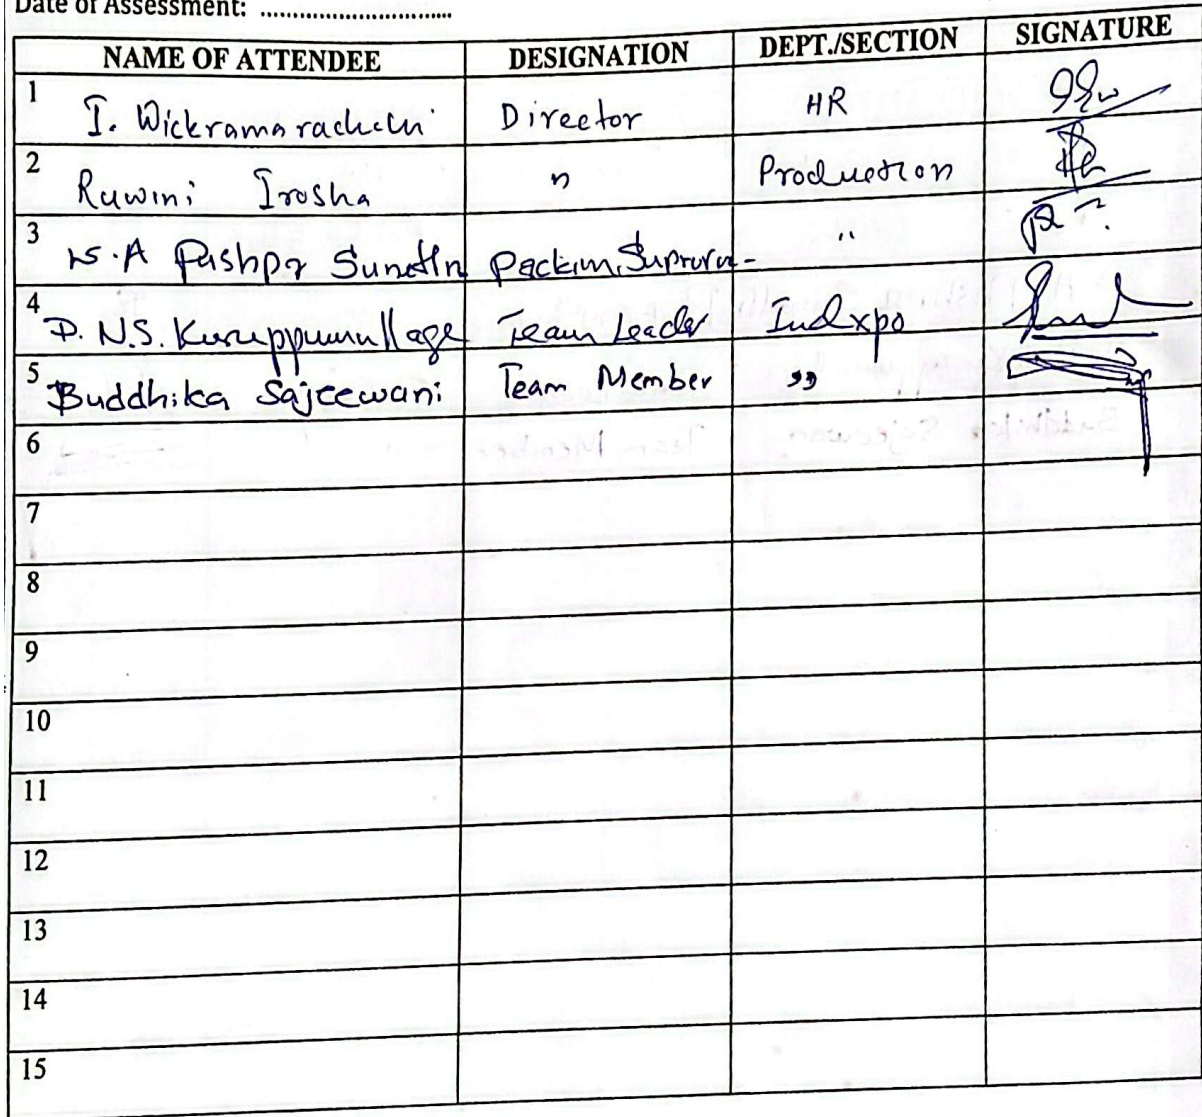 Date of Assessment: ................................
NAME OF ATTENDEE DESIGNATION DEPT./SECTION SIGNATURE
1 I. Wickramarachchi Director HR
2 Ruwini Irosha " Production
3 W.A Pushpa "
4 D. N.S. Kuruppumullage Team Leader Indexpo
5 Buddhika Sajeewani Team Member "
6
7
8
9
10
11
12
13
14
15